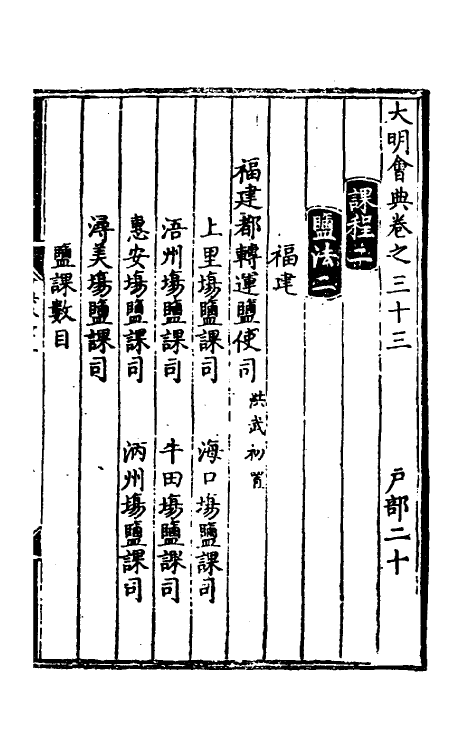 大明會典卷之三十三　戸部二十
課程二
鹽法二
福建
福建都轉運鹽使司 洪武初置
上里塲鹽課司　海口塲鹽課司
浯州塲鹽課司　牛田塲鹽課司
惠安塲鹽課司　洒州塲鹽課司
潯美塲鹽課司
鹽課數目